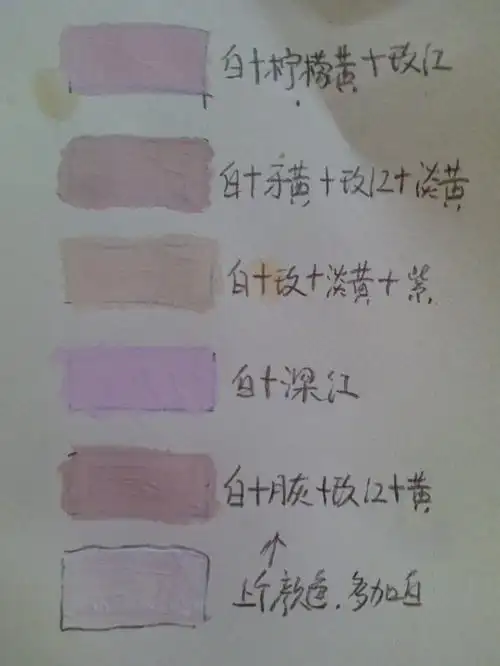 白+柠檬黄+玫红
白+牙黄+玫红+淡黄
白+玫+淡黄+紫
白+深红
白+月灰+玫红+黄
↑
上个颜色.多加白